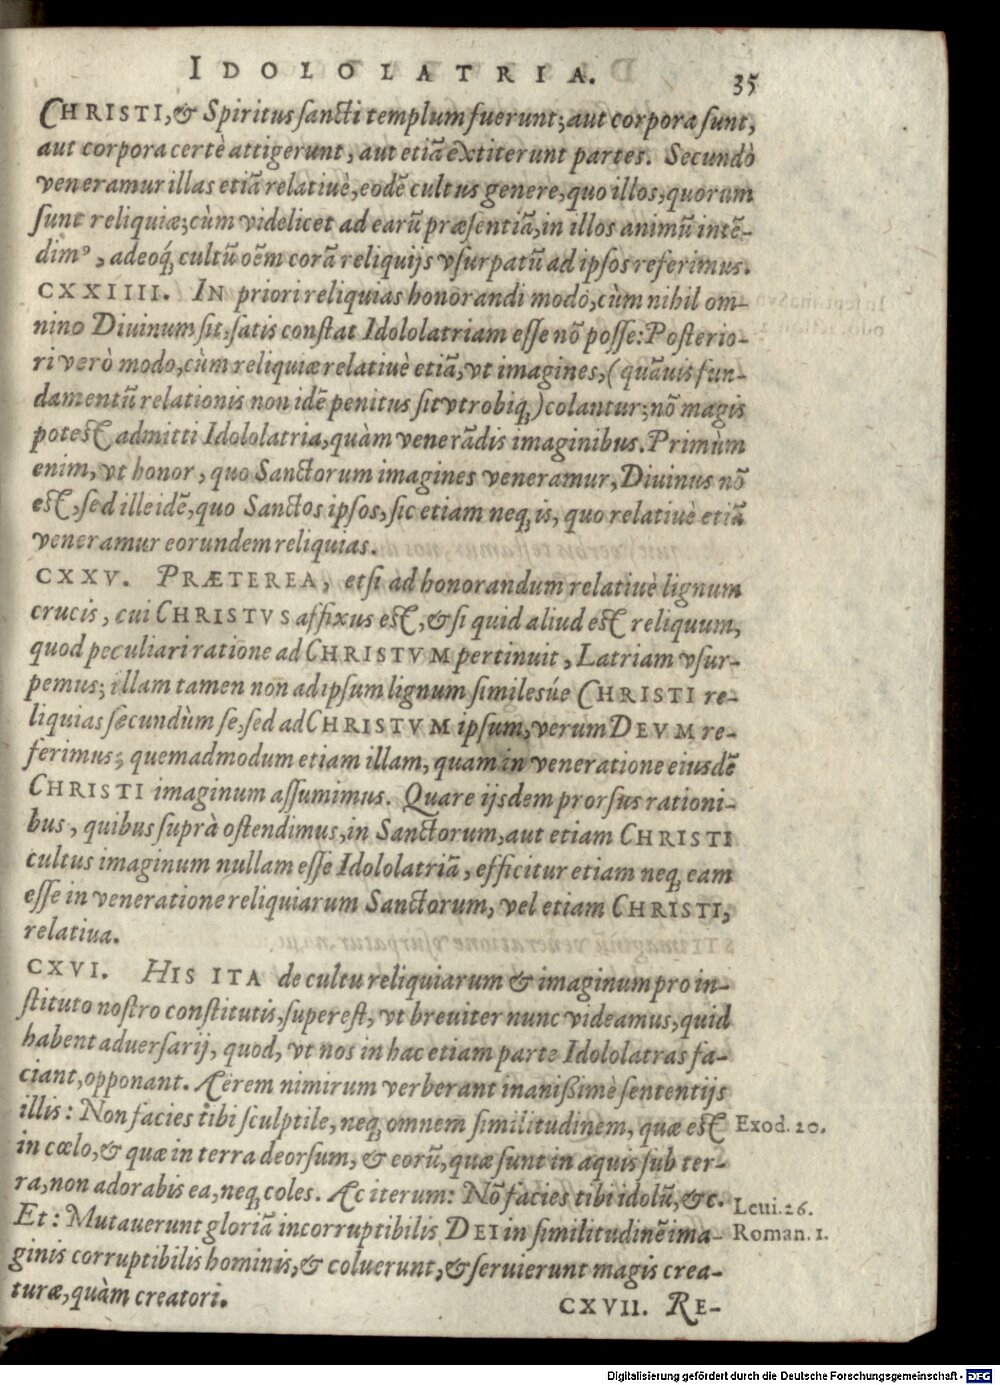 IDOLOLATRIA. 35
CHRISTI, & Spiritus sancti templum fuerunt; aut corpora sunt,
aut corpora certè attigerunt, aut etiã extiterunt partes. Secundò
veneramur illas etiã relatiuè, eodẽ cultus genere, quo illos, quorum
sunt reliquiæ; cùm videlicet ad earũ præsentiã, in illos animũ intẽ-
dimꝰ, adeoq́ꝫ cultũ oẽm corã reliquijs vsurpatũ ad ipsos referimus.
CXXIIII. IN priori reliquias honorandi modo, cùm nihil om-
nino Diuinum sit, satis constat Idololatriam esse nõ posse: Posterio-
ri verò modo, cùm reliquiæ relatiuè etiã, vt imagines, (quãuis fun-
damentũ relationis non idẽ penitus sit vtrobiqꝫ) colantur; nõ magis
potest admitti Idololatria, quàm venerãdis imaginibus. Primùm
enim, vt honor, quo Sanctorum imagines veneramur, Diuinus nõ
est, sed ille idẽ, quo Sanctos ipsos, sic etiam neqꝫ is, quo relatiuè etiã
veneramur eorundem reliquias.
CXXV. PRÆTEREA, etsi ad honorandum relatiuè lignum
crucis, cui CHRISTVS affixus est, & si quid aliud est reliquum,
quod peculiari ratione ad CHRISTVM pertinuit, Latriam vsur-
pemus; illam tamen non ad ipsum lignum similesúe CHRISTI re-
liquias secundùm se, sed ad CHRISTVM ipsum, verum DEVM re-
ferimus; quemadmodum etiam illam, quam in veneratione eiusdẽ
CHRISTI imaginum assumimus. Quare ijsdem prorsus rationi-
bus, quibus suprà ostendimus, in Sanctorum, aut etiam CHRISTI
cultus imaginum nullam esse Idololatriã, efficitur etiam neqꝫ eam
esse in veneratione reliquiarum Sanctorum, vel etiam CHRISTI,
relatiua.
CXVI. HIS ITA de cultu reliquiarum & imaginum pro in-
stituto nostro constitutis, superest, vt breuiter nunc videamus, quid
habent aduersarij, quod, vt nos in hac etiam parte Idololatras fa-
ciant, opponant. Aërem nimirum verberant inanißimè sententijs
illis: Non facies tibi sculptile, neqꝫ omnem similitudinem, quæ est Exod. 20.
in cœlo, & quæ in terra deorsum, & eorũ, quæ sunt in aquis sub ter-
ra, non adorabis ea, neqꝫ coles. Ac iterum: Nõ facies tibi idolũ, &c. Leui. 26.
Et: Mutauerunt gloriã incorruptibilis DEI in similitudinẽ ima- Roman. 1.
ginis corruptibilis hominis, & coluerunt, & seruierunt magis crea-
turæ, quàm creatori.
CXVII. RE-
Digitalisierung gefördert durch die Deutsche Forschungsgemeinschaft - DFG